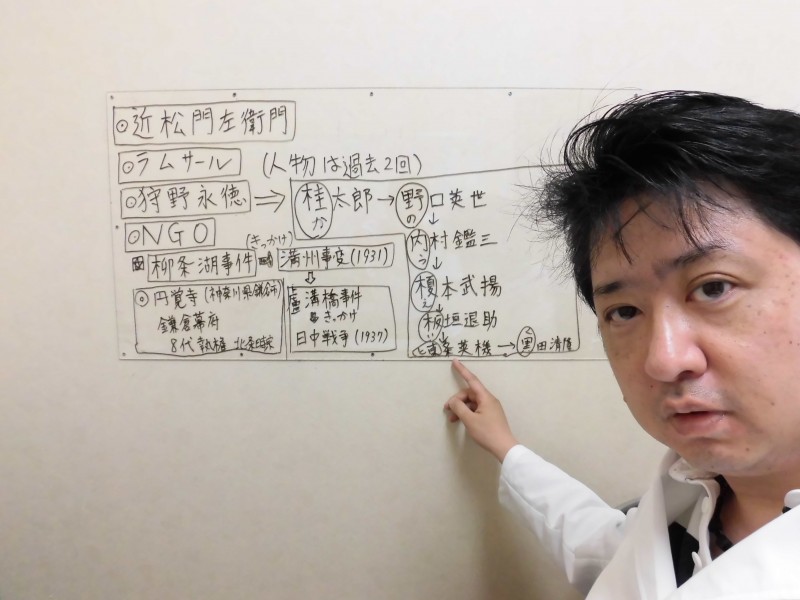 ◎近松門左衛門
◎ラムサール (人物は過去2回)
◎狩野永徳 ⇒ 桂太郎→野口英世
か の
◎NGO
↓
内村鑑三
う
↓
(きっかけ)
柳条湖事件 満州事変(1931)
榎本武揚
え
◎円覚寺(神奈川県鎌倉市)
鎌倉幕府
8代執権
盧溝橋事件
きっかけ
日中戦争(1937)
板垣退助
い
と東条英機→黒田清隆